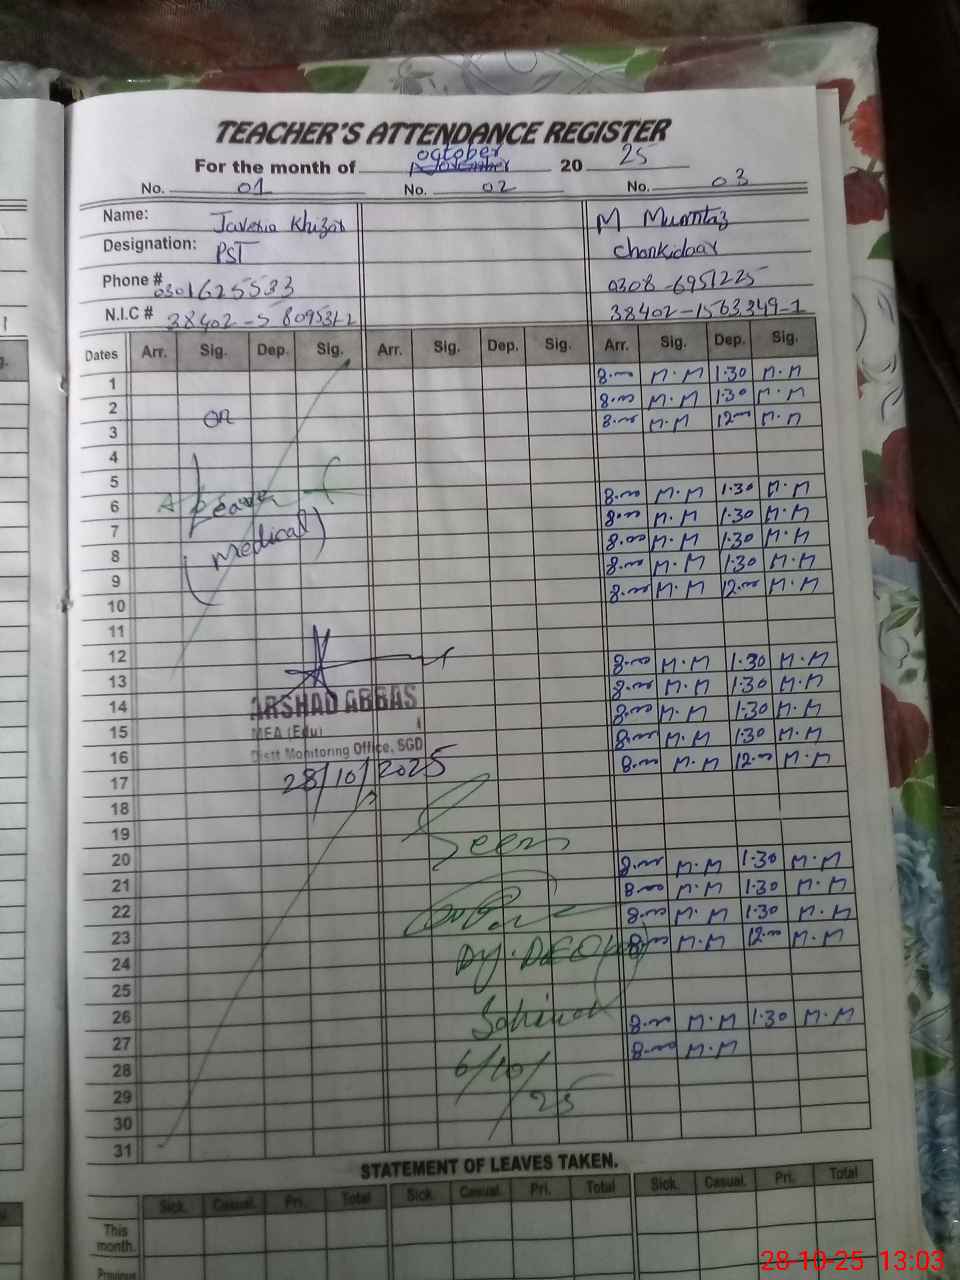 TEACHER'S ATTENDANCE REGISTER
For the month of October 20 25
No. 01 No. 02 No. 03
Name: Javeria Khizar M Mumtaz
Designation: PST Chonkidaar
Phone # 0301625533 0308-6951225
N.I.C # 38402- 38402-1563349-1
Dates Arr. Sig. Dep. Sig. Arr. Sig. Dep. Sig. Arr. Sig. Dep. Sig.
1 8.00 M.M 1.30 M.M
2 8.00 M.M 1.30 M.M
3 on 8.00 M.M 12.00 M.M
4
5
6 Leave 8.00 M.M 1.30 M.M
7 8.00 M.M 1.30 M.M
8 (medical) 8.00 M.M 1.30 M.M
9 8.00 M.M 1.30 M.M
10 8.00 M.M 12.00 M.M
11
12
13 8.00 M.M 1.30 M.M
14 8.00 M.M 1.30 M.M
15 8.00 M.M 1.30 M.M
16 8.00 M.M 1.30 M.M
17 8.00 M.M 12.00 M.M
ARSHAD ABBAS
MEA (Edu)
Distt Monitoring Office, SGD
28/10/2025
18
19
20 Seen
21 8.00 M.M 1.30 M.M
22 8.00 M.M 1.30 M.M
23 8.00 M.M 1.30 M.M
24 Dy. DEO 8.00 M.M 12.00 M.M
25
26
27 8.00 M.M 1.30 M.M
28 8.00 M.M
6/10/25
29
30
31
STATEMENT OF LEAVES TAKEN.
Sick. Casual. Pri. Total Sick. Casual. Pri. Total Sick. Casual. Pri. Total
This month.
Previous
28-10-25 13:03